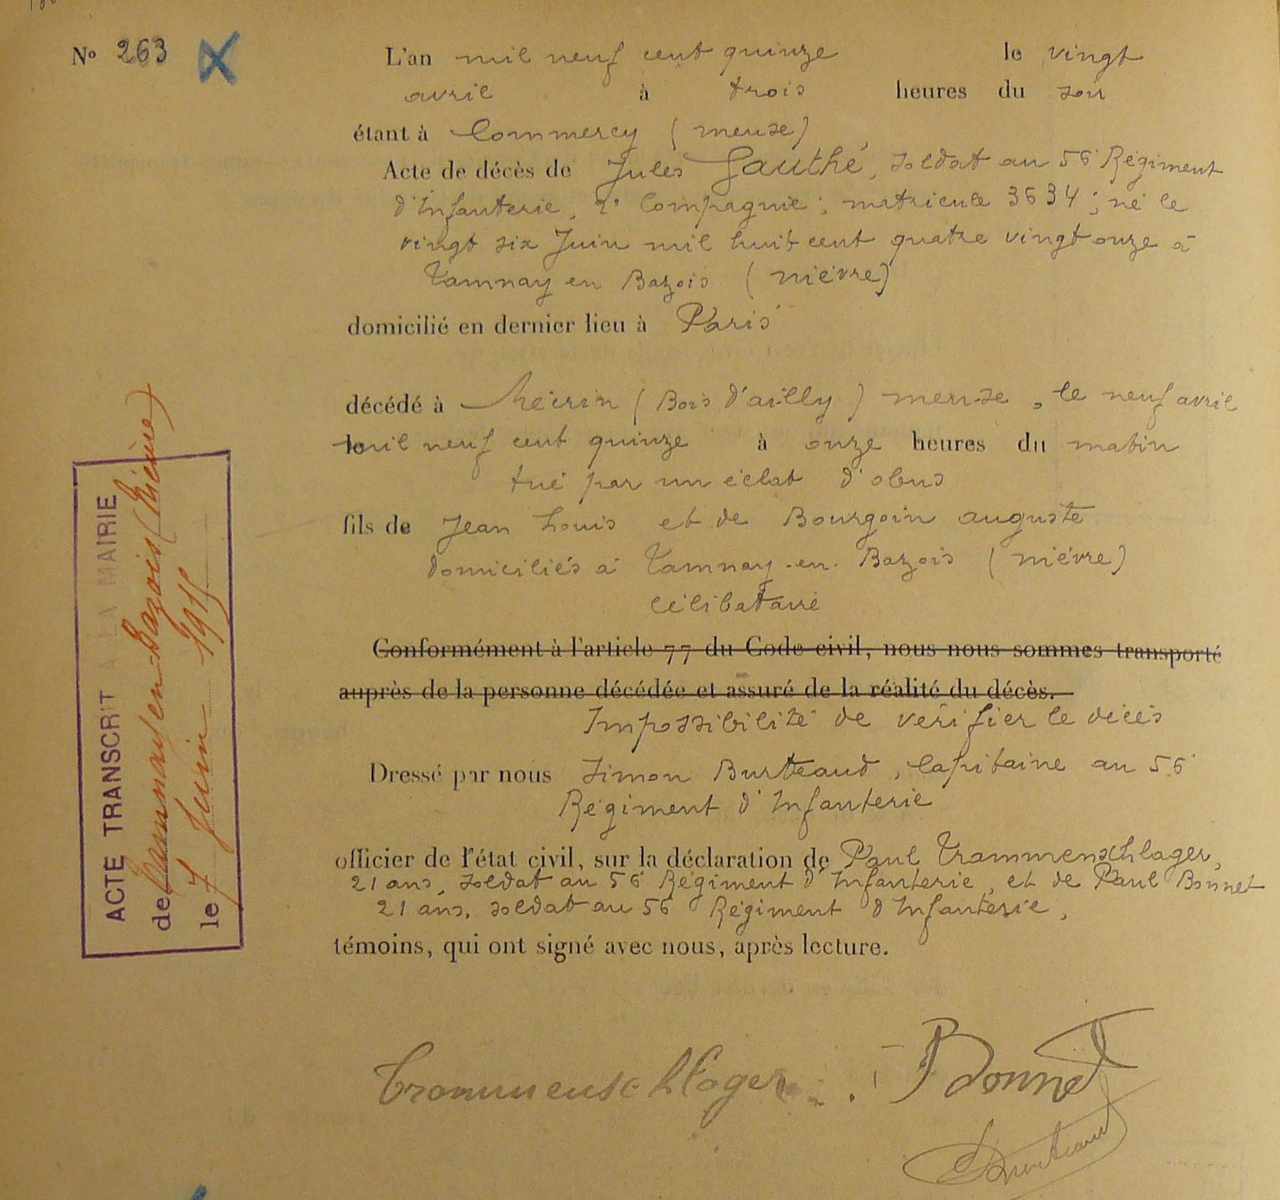 No 263
L'an mil neuf cent quinze le vingt
avril à trois heures du soir
étant à Commercy (meuse)
Acte de décès de Jules Gauthé, soldat au 56 Régiment
d'Infanterie, 2e Compagnie; matricule 3634; né le
vingt six Juin mil huit cent quatre vingt onze à
Tamnay en Bazois (nièvre)
domicilié en dernier lieu à Paris
décédé à (Bois d'ailly) meuse, le neuf avril
mil neuf cent quinze à onze heures du matin
tué par un éclat d'obus
fils de Jean Louis et de Bourgoin auguste
domiciliés à Tamnay-en-Bazois (nièvre)
célibataire
Conformément à l'article 77 du Code civil, nous nous sommes transporté
auprès de la personne décédée et assuré de la réalité du décès.
Impossibilité de vérifier le décès
Dressé par nous Simon Burteaud, Capitaine au 56
Régiment d'Infanterie
officier de l'état civil, sur la déclaration de Paul Trammenschlager,
21 ans, soldat au 56 Régiment d'Infanterie, et de Paul Bonnet
21 ans, soldat au 56 Régiment d'Infanterie,
témoins, qui ont signé avec nous, après lecture.
Trammenschlager PBonnet
Burteaud
ACTE TRANSCRIT A LA MAIRIE
de Tamnay en-Bazois (Nièvre)
le 7 Juin 1915